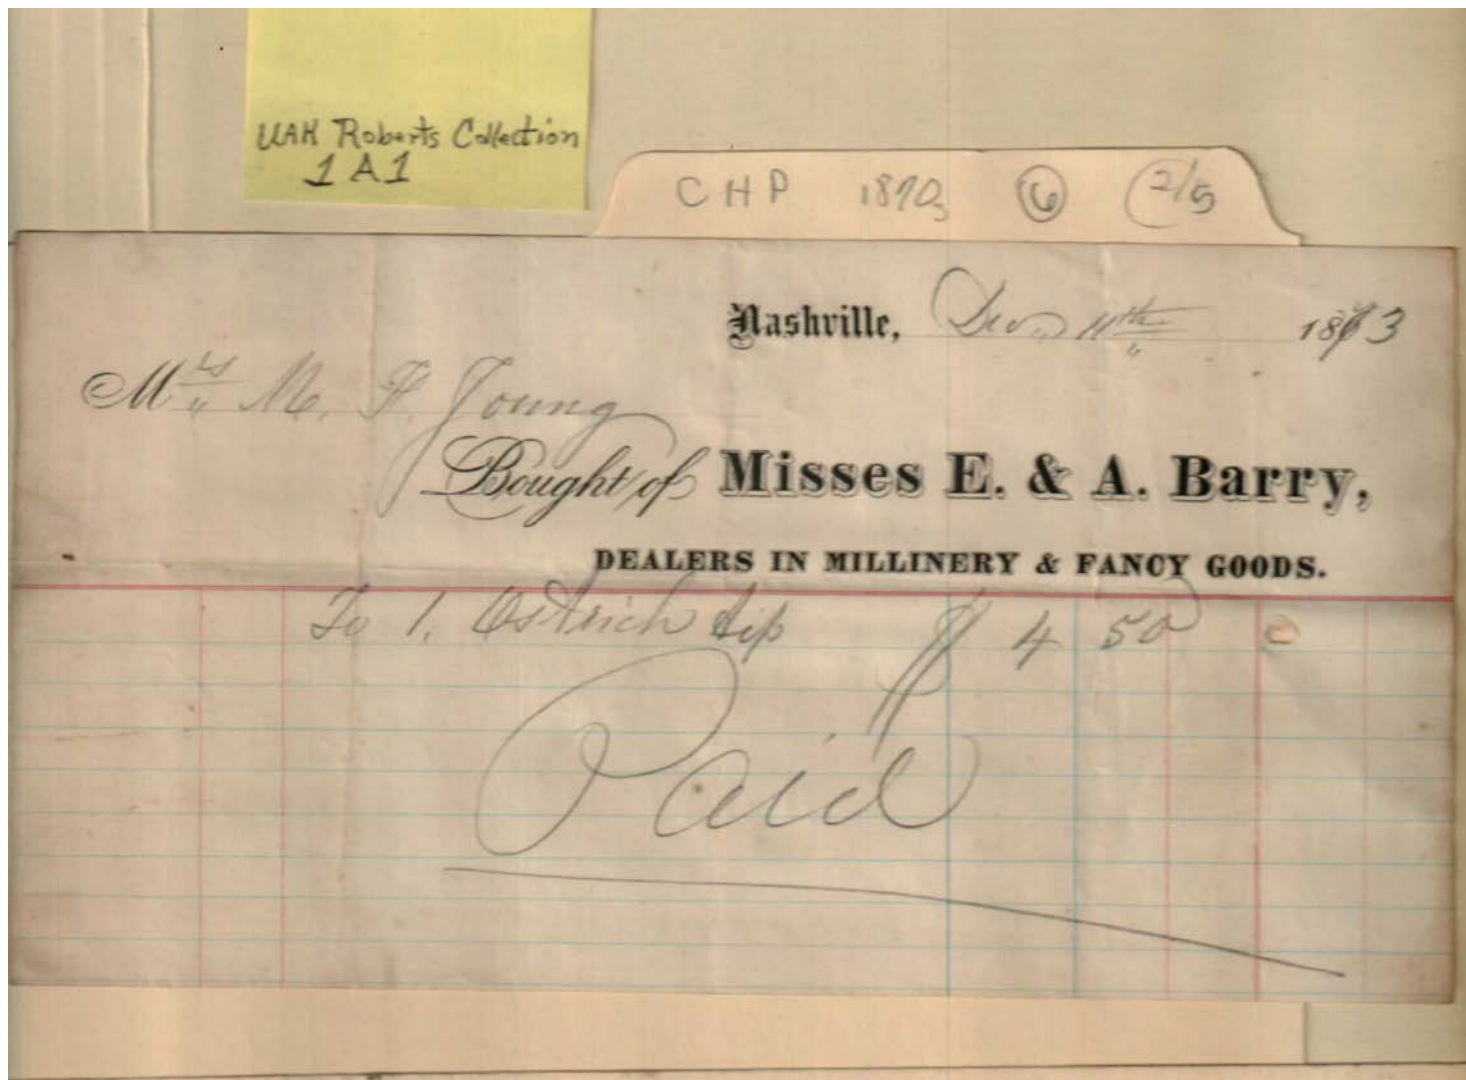 UAH Roberts Collection
1 A 1
CHP 1870s 6 2/5
Nashville, Dec. 11th 1873
Mrs. M. F. Young
Bought of Misses E. & A. Barry,
DEALERS IN MILLINERY & FANCY GOODS.
To 1. Ostrich tip $ 4 50
Paid